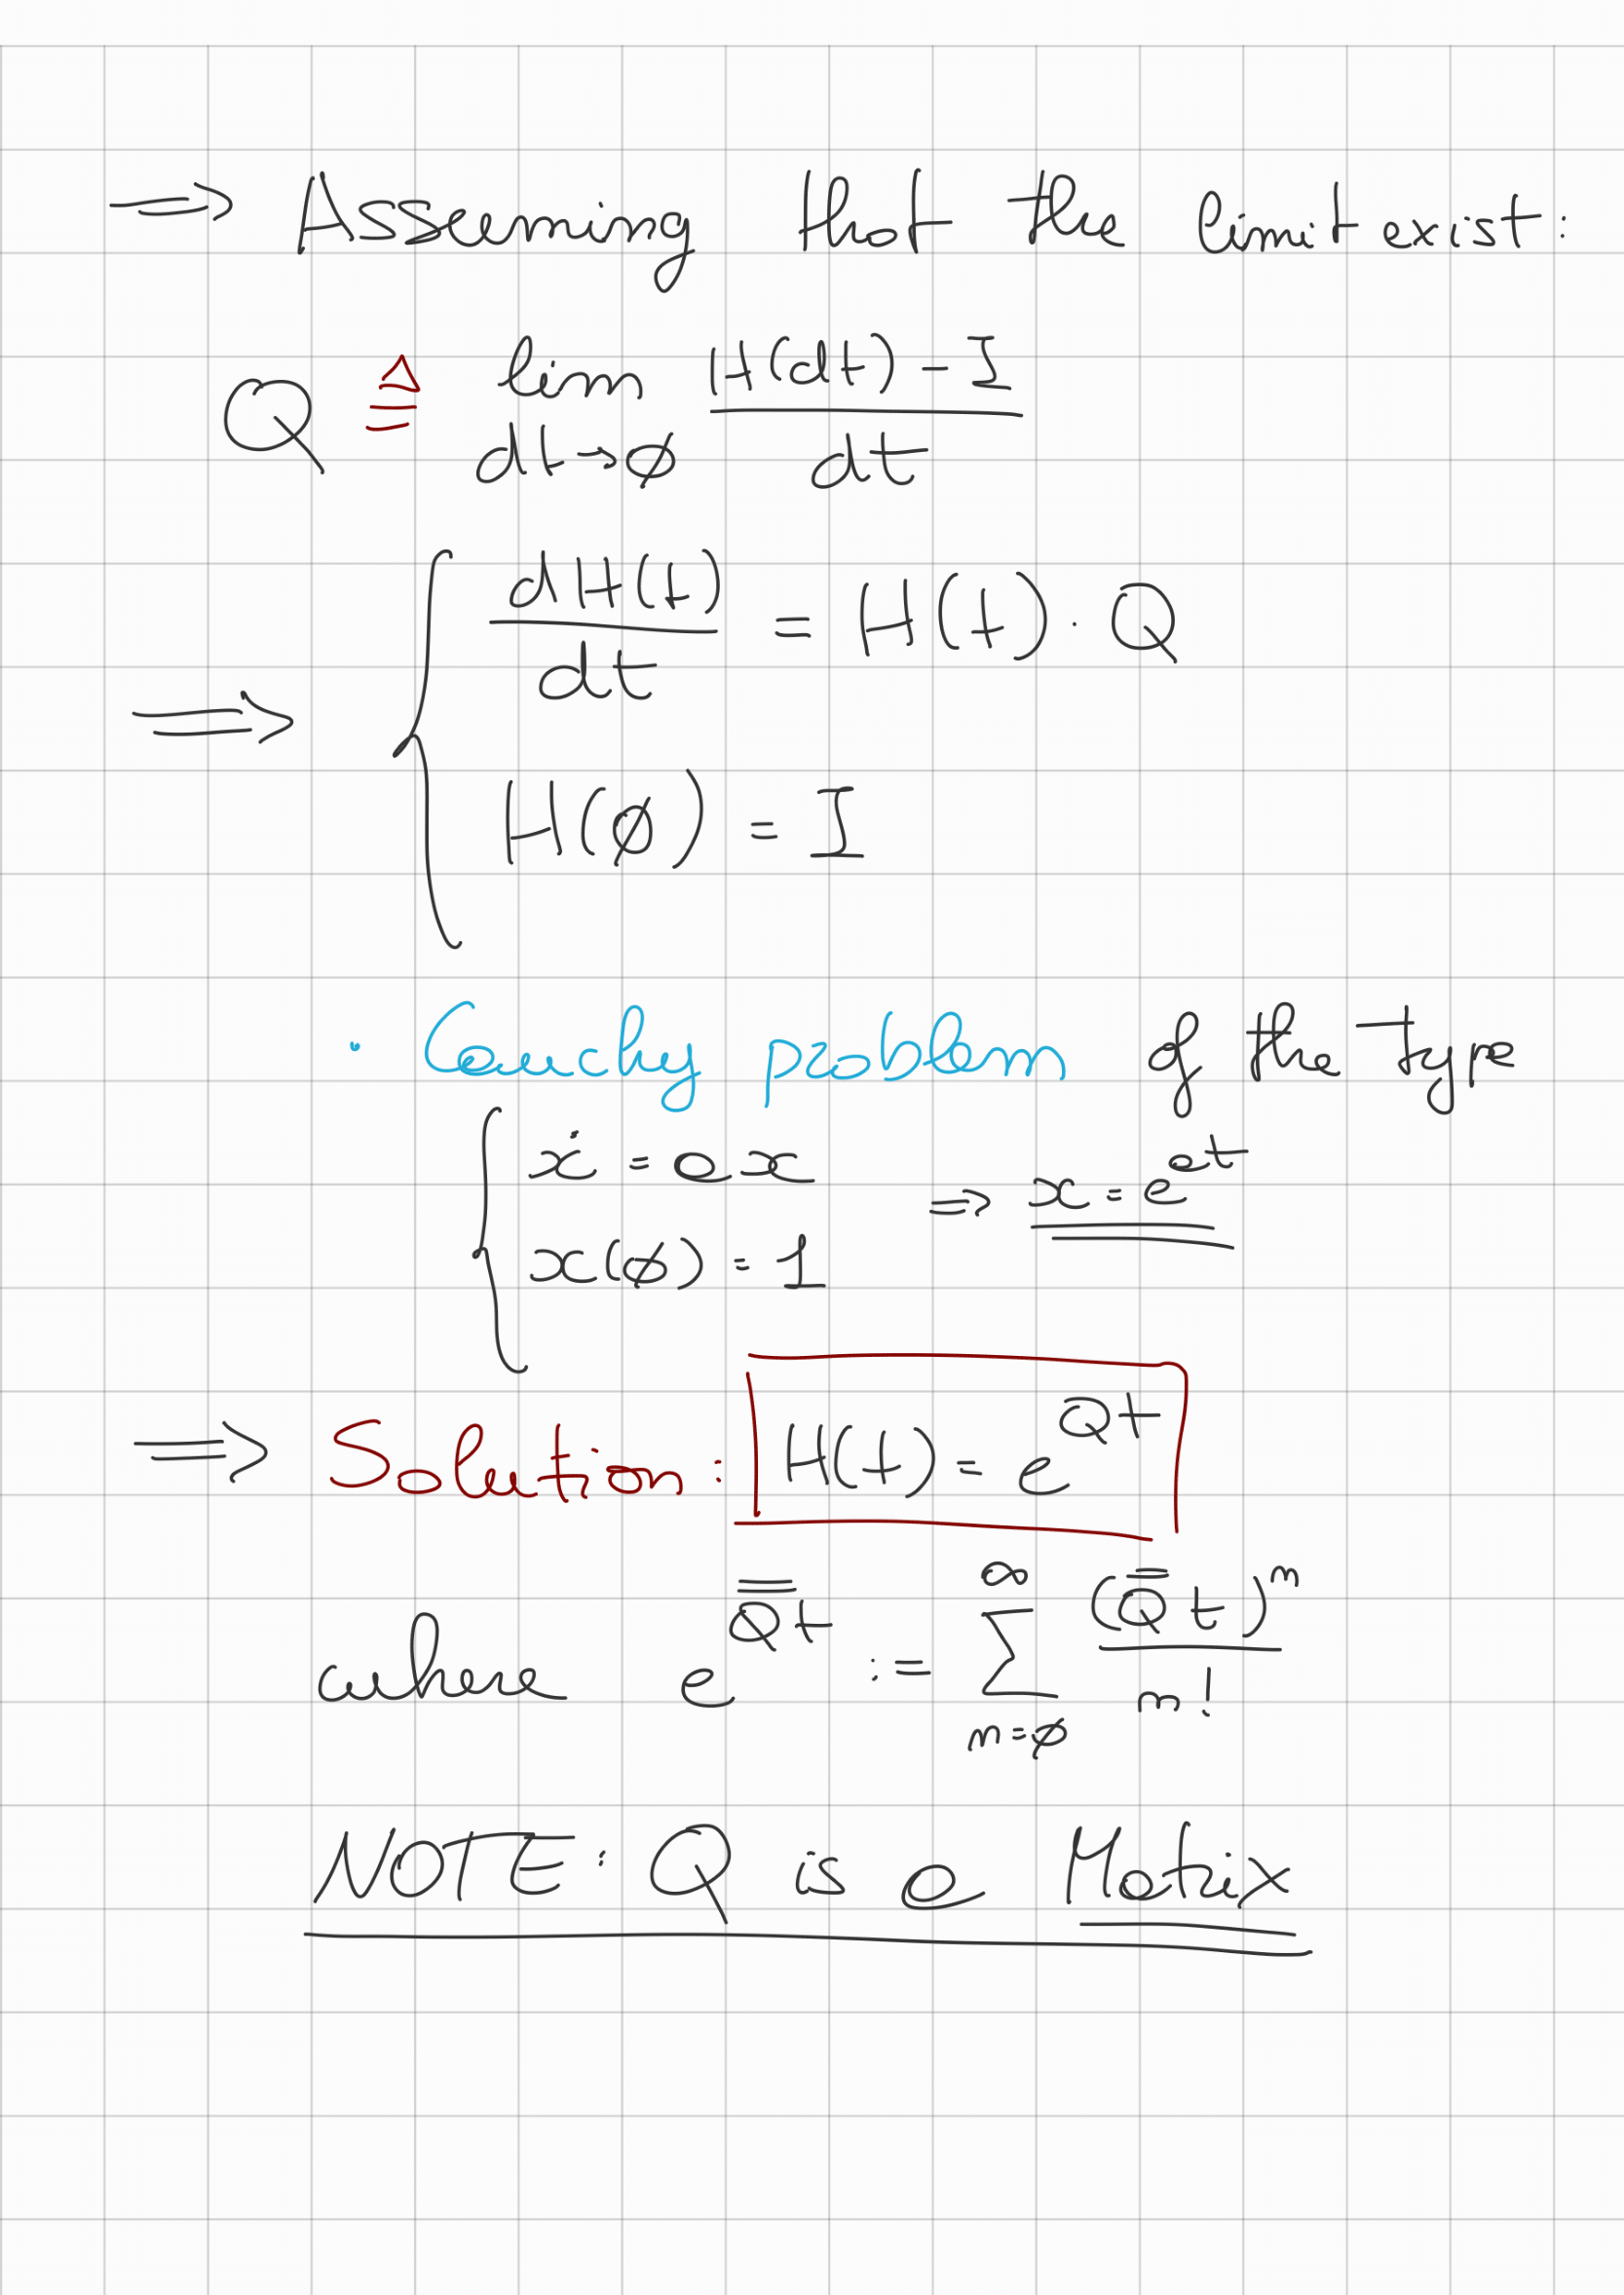 ⇒ Assuming that the limit exist:
Q ≜ lim_{dt→∅} (H(dt) - I) / dt
⇒ { dH(t)/dt = H(t) · Q
H(∅) = I
· Cauchy problem of the type
{ ẋ = ax ⇒ x = e^{at}
x(∅) = 1
⇒ Solution: H(t) = e^{Qt}
where e^{Q̿t} := Σ_{n=∅}^{∞} (Q̿t)^n / n!
NOTE: Q is a Matrix